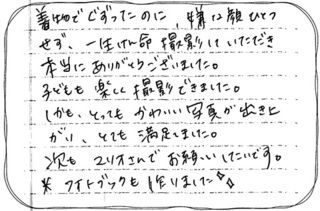 着物でぐずったのに、嫌な顔ひとつ
せず、一生けん命撮影していただき
本当にありがとうございました。
子どもも楽しく撮影できました。
しかも、とってもかわいい写真が出き上
がり、とても満足しました。
次もユリオさんでお願いしたいです。
※フォトブックも作りました✧